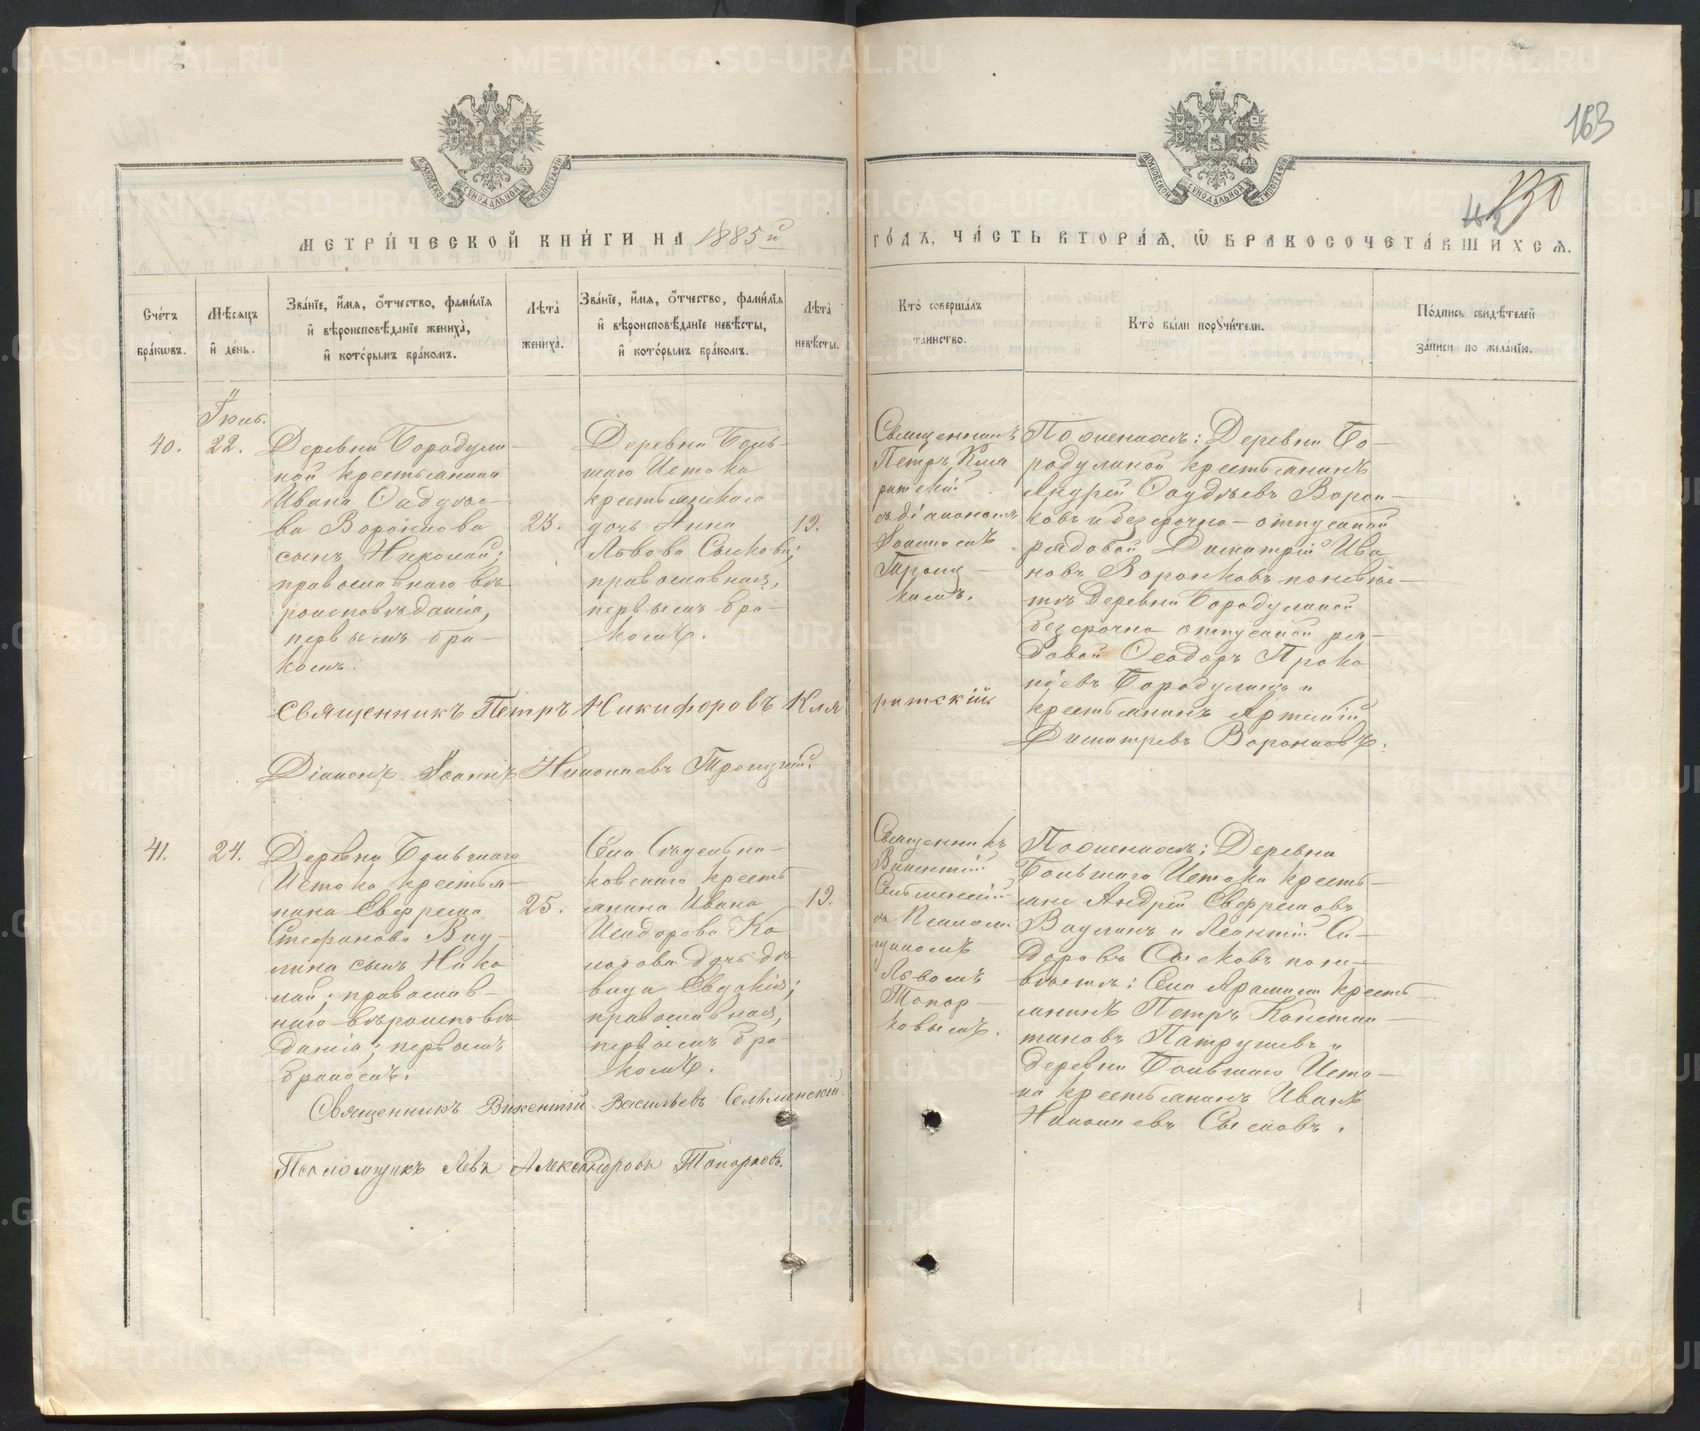 163
130
МЕТРИ́ЧЕСКОЙ КНИ́ГИ НА 1885й
ГО́ДЪ, ЧА́СТЬ ВТОРА́Я, Ѿ БРАКОСОЧЕТА́ВШИХСЯ.
Сче́тъ бра́кѡвъ.
Мѣ́сяцъ и҆ де́нь.
Зва́нїе, и҆́мя, ѻ҆́тчество, фами́лїя
и҆ вѣроисповѣ́данїе жениха̀,
и҆ кото́рымъ бра́комъ.
Лѣта̀ жениха̀.
Зва́нїе, и҆́мя, ѻ҆́тчество, фами́лїя
и҆ вѣроисповѣ́данїе невѣ́сты,
и҆ кото́рымъ бра́комъ.
Лѣта̀ невѣ́сты.
Кто̀ соверша́лъ
та́инство.
Кто̀ бы́ли порꙋчи́тели.
По́дпись свидѣ́телей
за́писи по жела́нїю.
40.
22.
Деревни Бородули-
ной крестьянина
Ивана
ва Воронкова
сынъ Николай;
православнаго вѣ-
роисповѣданія,
первымъ бра-
комъ.
23.
Деревни Боль-
шаго Истока
крестьянскаго
дочь Анна
Львова Сыскова;
православная,
первымъ бра-
комъ.
19.
Священникъ
Петръ Кля
ритскій
съ діакономъ
Іоанномъ
Троиц-
кимъ.
Поженихѣ: Деревни Бо-
родулиной крестьянинъ
Андрей Ворон-
ковъ и безсрочно-отпускной
рядовой Димитрій Ива
новъ Воронковъ поневѣс-
тѣ Деревни Бородулиной
безсрочно отпускной ря-
довой Ѳеодоръ Проко
піевъ Бородулинъ и
крестьянинъ Артемій
Димитріевъ Воронковъ.
Священникъ Петръ Никифоровъ Кля
ритскій
Діаконъ Іоаннъ Николаевъ Троицкій.
41.
24.
Деревни Большаго
Истока крестья-
нина Евфрема
Стефанова Вад-
лина сынъ Нико
лай; православ-
наго вѣроисповѣ
данія; первымъ
бракомъ.
25.
Села
ковскаго кресть
янина Ивана
Исидорова Ко
лотова дочь дѣ
вица Евдокія;
православная,
первымъ бра-
комъ.
19.
Священникъ
Викентій
Сельменскій
съ Псалом
щикомъ
Львомъ
Топор-
ковымъ.
Поженихѣ; Деревни
Большаго Истока кресть-
яне Андрей Евфремовъ
Вадлинъ и Леонтій Си-
доровъ Сысковъ поне-
вѣстѣ: Села Арамили кресть
янинъ Петръ Констан-
тиновъ Патрушевъ и
деревни Большаго Исто-
ка крестьянинъ Иванъ
Николаевъ Сысковъ.
Священникъ Викентій Васильевъ Сельменскій.
Псаломщикъ Левъ Александровъ Топорковъ.
METRIKI.GASO-URAL.RU